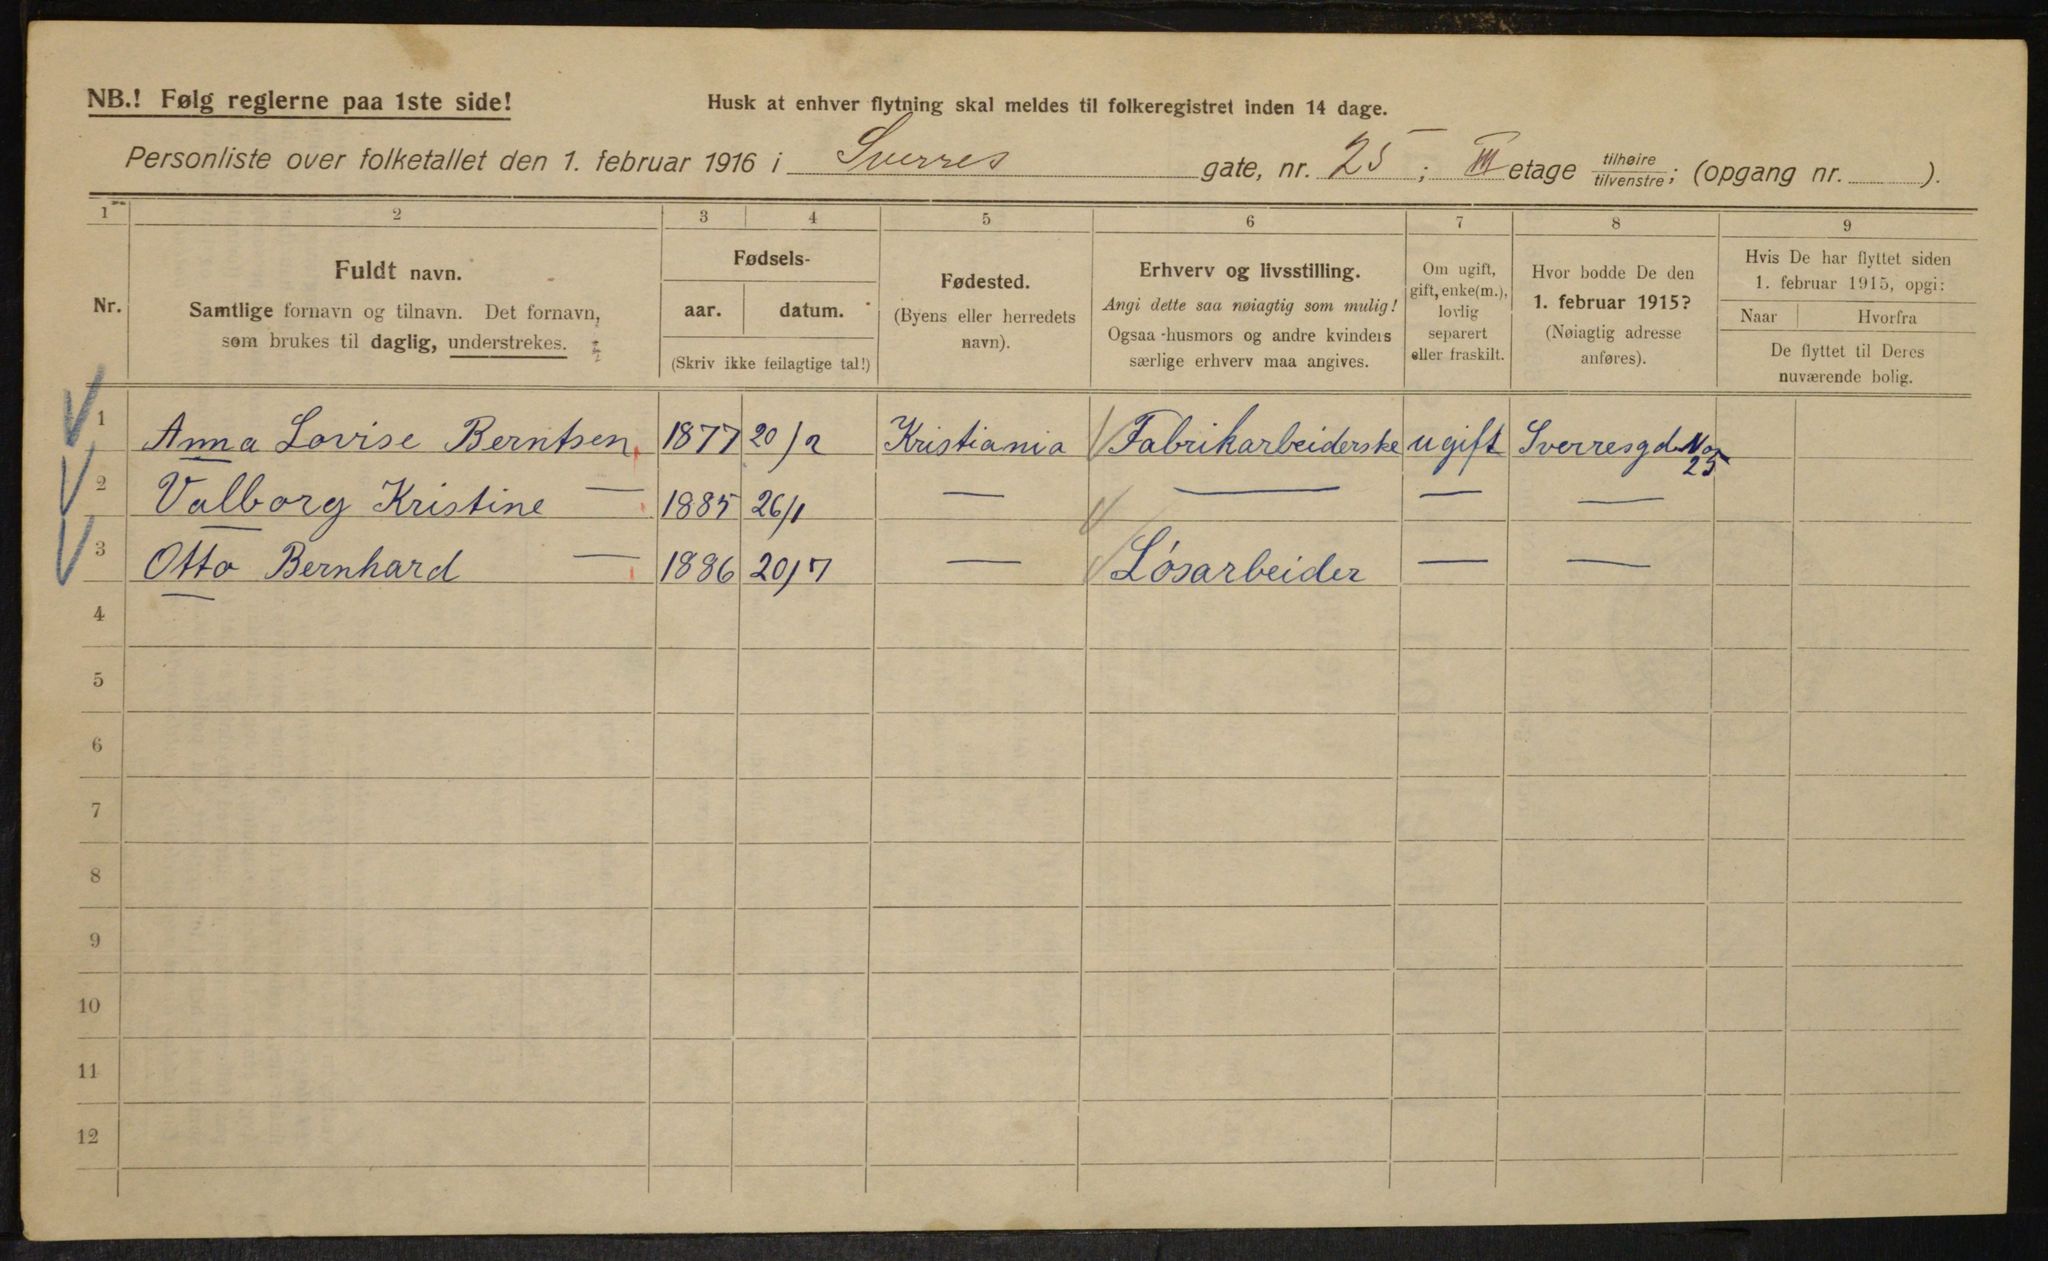 NB.! Følg reglerne paa 1ste side!
Husk at enhver flytning skal meldes til folkeregistret inden 14 dage.
Personliste over folketallet den 1. februar 1916 i Sverres gate, nr. 25; III etage tilhøire/tilvenstre; (opgang nr. ).
1 2 3 4 5 6 7 8 9
Nr.
Fuldt navn.
Samtlige fornavn og tilnavn. Det fornavn,
som brukes til daglig, understrekes.
Fødsels-
aar. datum.
(Skriv ikke feilagtige tal!)
Fødested.
(Byens eller herredets
navn).
Erhverv og livsstilling.
Angi dette saa nøiagtig som mulig!
Ogsaa husmors og andre kvinders
særlige erhverv maa angives.
Om ugift,
gift, enke(m.),
lovlig
separert
eller fraskilt.
Hvor bodde De den
1. februar 1915?
(Nøiagtig adresse
anføres).
Hvis De har flyttet siden
1. februar 1915, opgi:
Naar Hvorfra
De flyttet til Deres
nuværende bolig.
1 Anna Lovise Berntsen 1877 20/2 Kristiania Fabrikarbeiderske ugift Sverresgd No 25
2 Valborg Kristine — 1885 26/1 — — — —
3 Otto Bernhard — 1886 20/7 — Lósarbeider — —
4
5
6
7
8
9
10
11
12